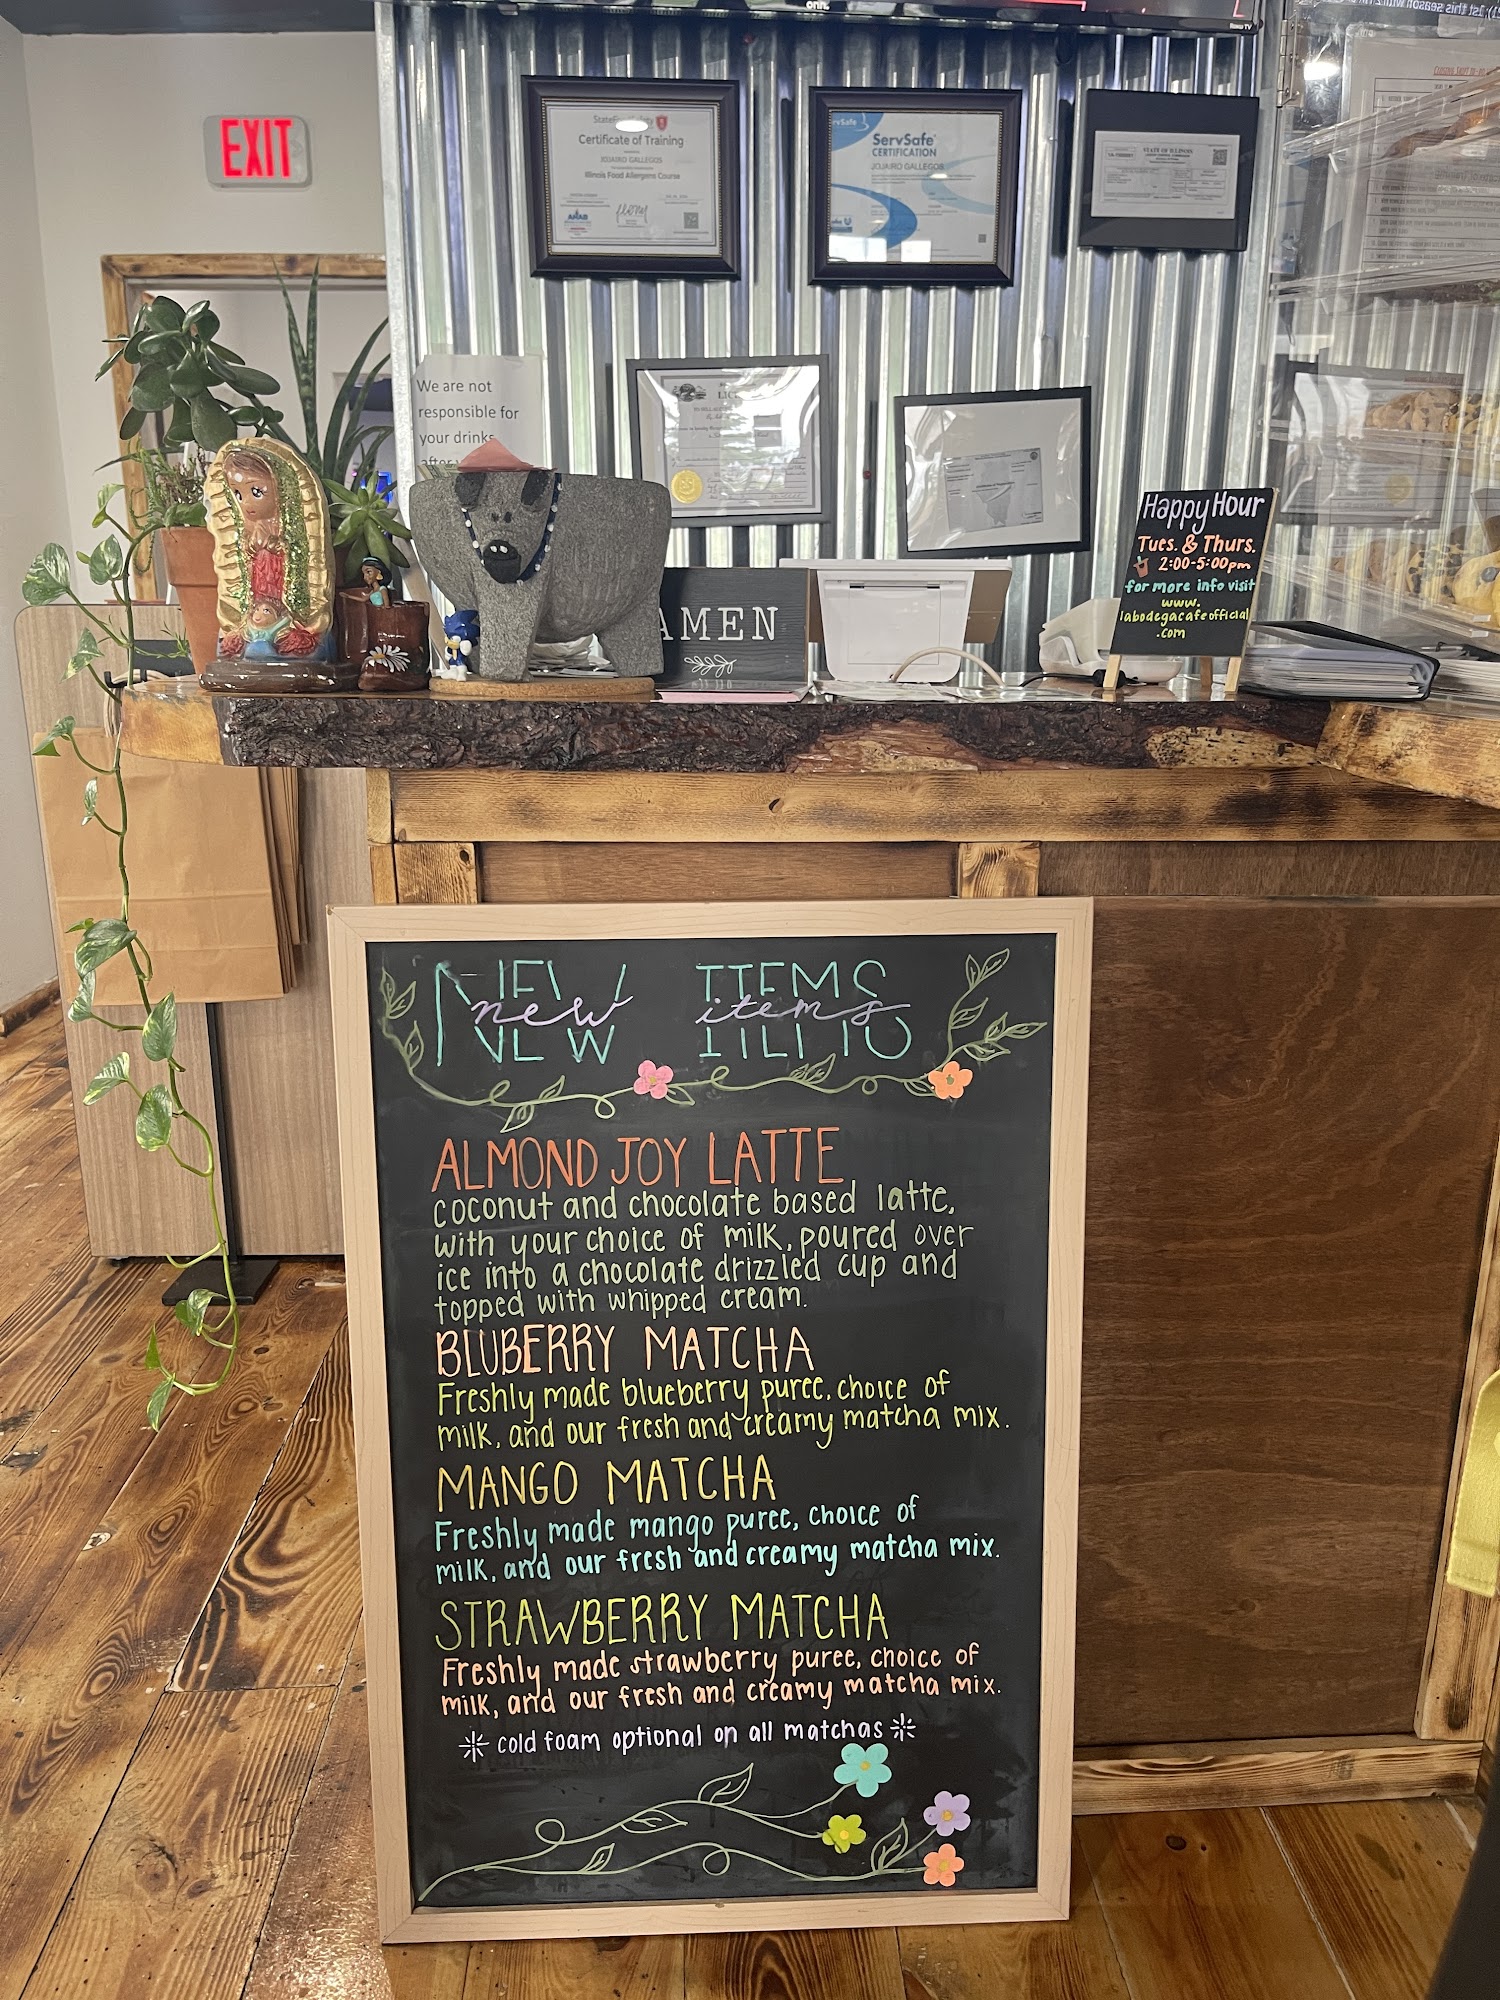 onn
Roku TV
1st this season with
EXIT
Certificate of Training
JOJAIRO GALLEGOS
Illinois Food Allergens Course
ANAB
ServSafe
ServSafe
CERTIFICATION
JOJAIRO GALLEGOS
STATE OF ILLINOIS
We are not
responsible for
your drinks
AMEN
Happy Hour
Tues. & Thurs.
2:00-5:00pm
for more info visit
www.
labodegacafeofficial
.com
NEW ITEMS
new items
ALMOND JOY LATTE
coconut and chocolate based latte,
with your choice of milk, poured over
ice into a chocolate drizzled cup and
topped with whipped cream.
BLUBERRY MATCHA
Freshly made blueberry puree, choice of
milk, and our fresh and creamy matcha mix.
MANGO MATCHA
Freshly made mango puree, choice of
milk, and our fresh and creamy matcha mix.
STRAWBERRY MATCHA
Freshly made strawberry puree, choice of
milk, and our fresh and creamy matcha mix.
cold foam optional on all matchas